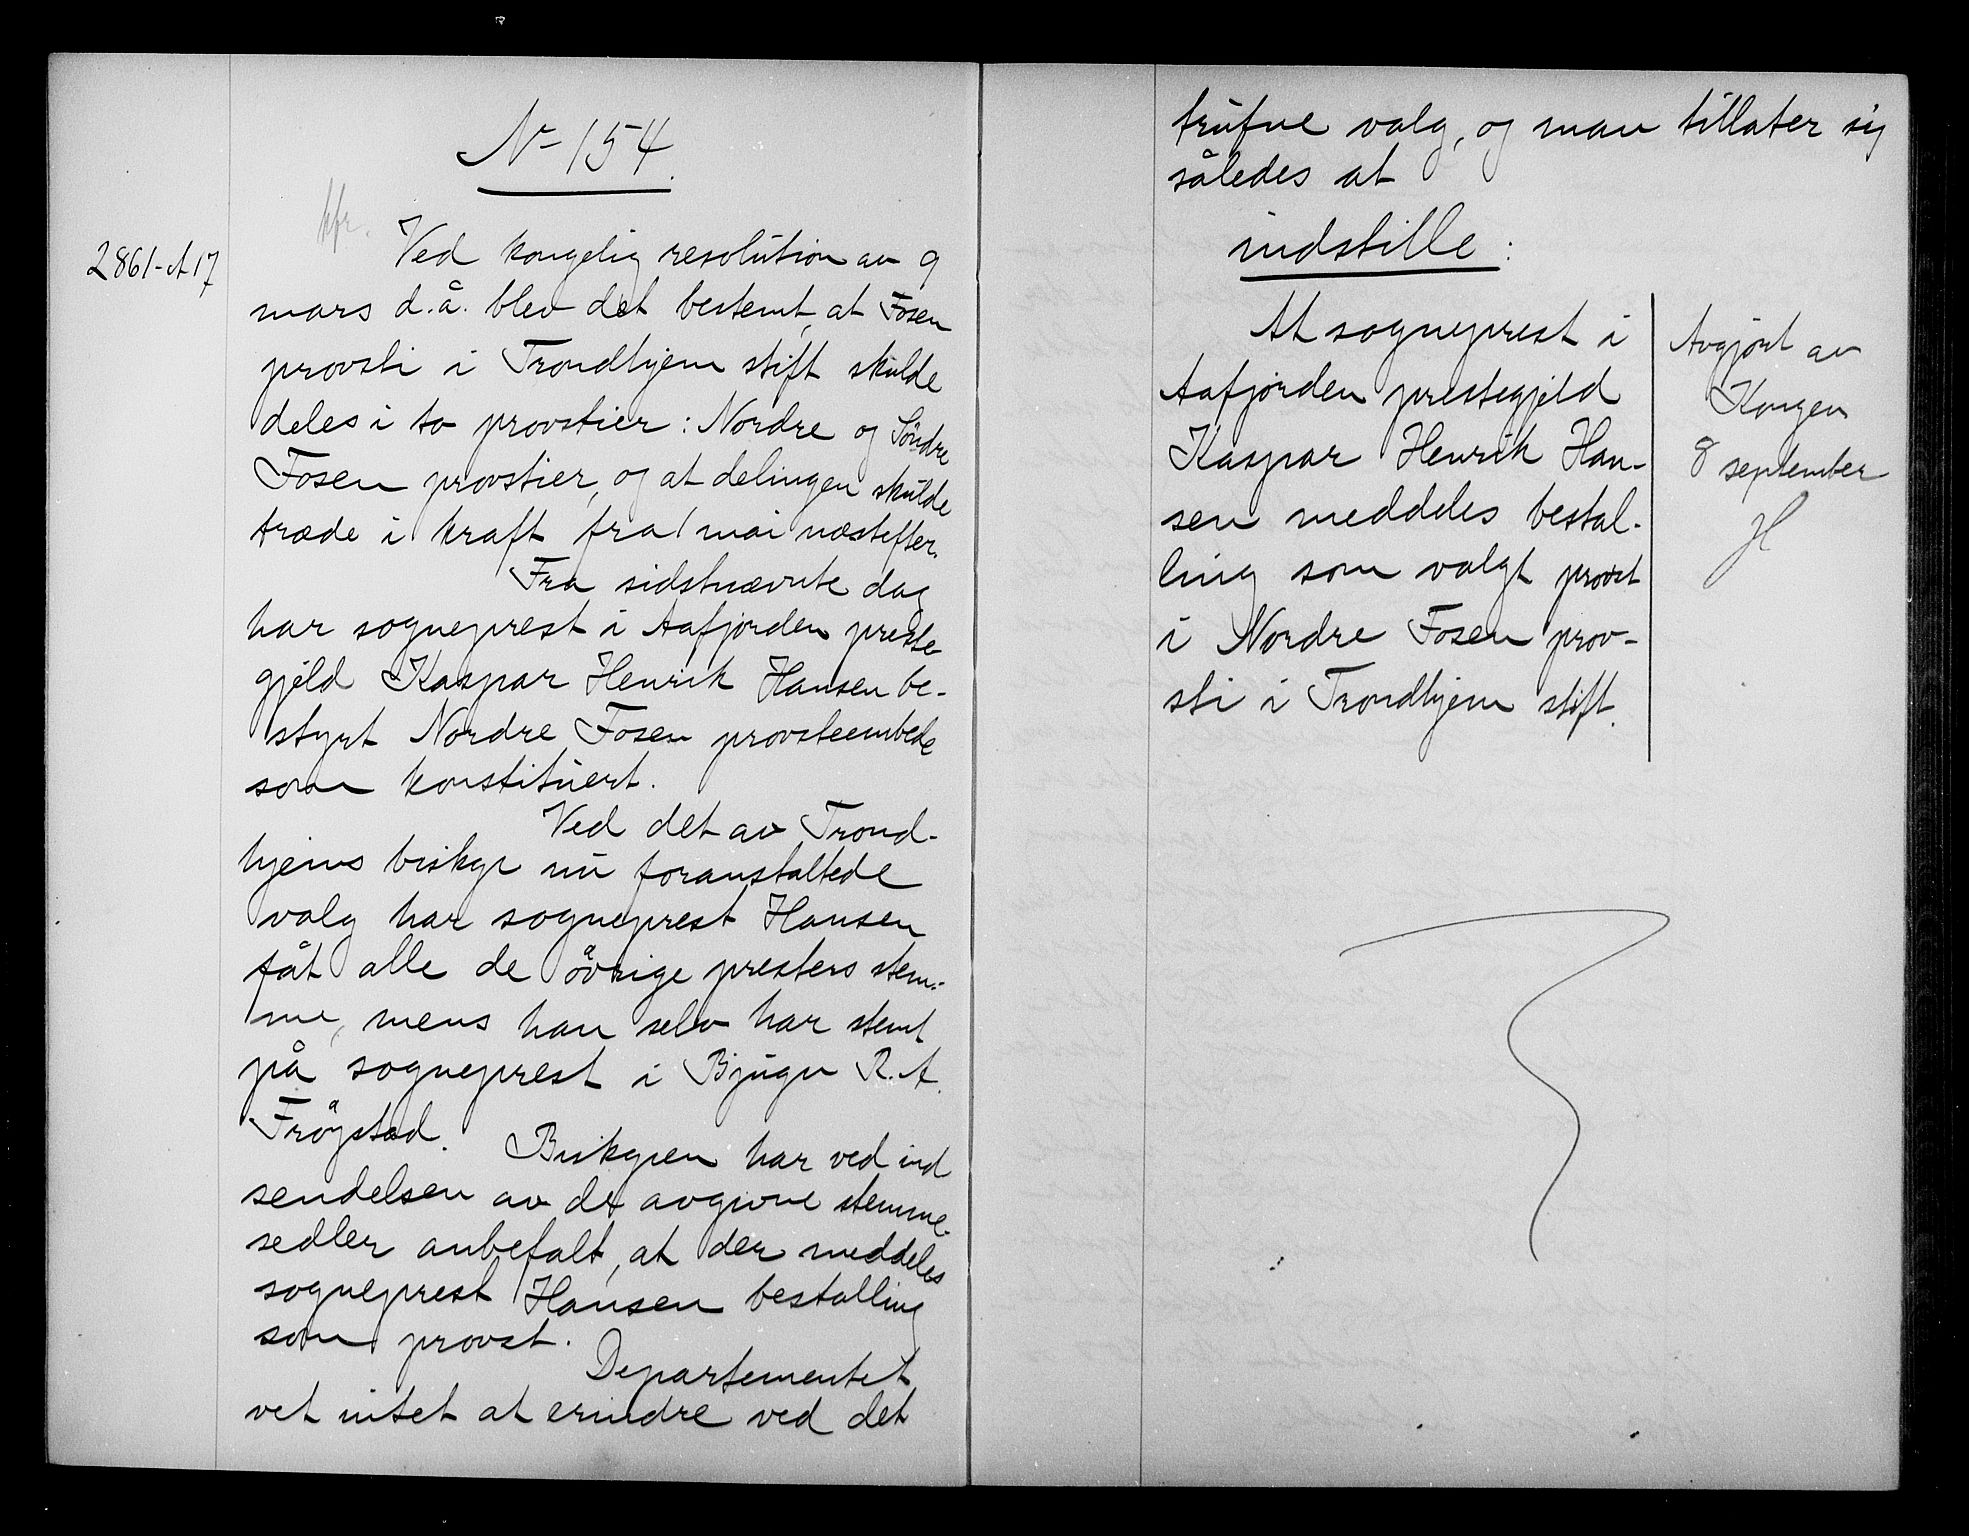 No 154.
kfr.
2861-A17
Ved kongelig resolution av 9
mars d.å. blev det bestemt, at Fosen
provsti i Trondhjem stift skulde
deles i to provstier: Nordre og Söndre
Fosen provstier, og at delingen skulde
træde i kraft fra 1 mai næstefter.
Fra sidstnævnte dag
har sogneprest i Aafjorden preste
gjeld Kaspar Henrik Hansen be-
styrt Nordre Fosen provsteembede
som konstituert.
Ved det av Trond-
hjems biskop nu foranstaltede
valg har sogneprest Hansen
fåt alle de övrige presters stem-
me, mens han selv har stemt
på sogneprest i Bjugn R. A.
Fröystad. Biskopen har ved ind
sendelsen av de avgivne stemme-
sedler anbefalt, at der meddeles
sogneprest Hansen bestalling
som provst.
Departementet
vet intet at erindre ved det
trufne valg, og man tillater sig
således at
indstille:
At sogneprest i
Aafjorden prestegjeld
Kaspar Henrik Han-
sen meddeles bestal-
ling som valgt provst
i Nordre Fosen prov-
sti i Trondhjem stift.
Avgjort av
Kongen
8 september
H